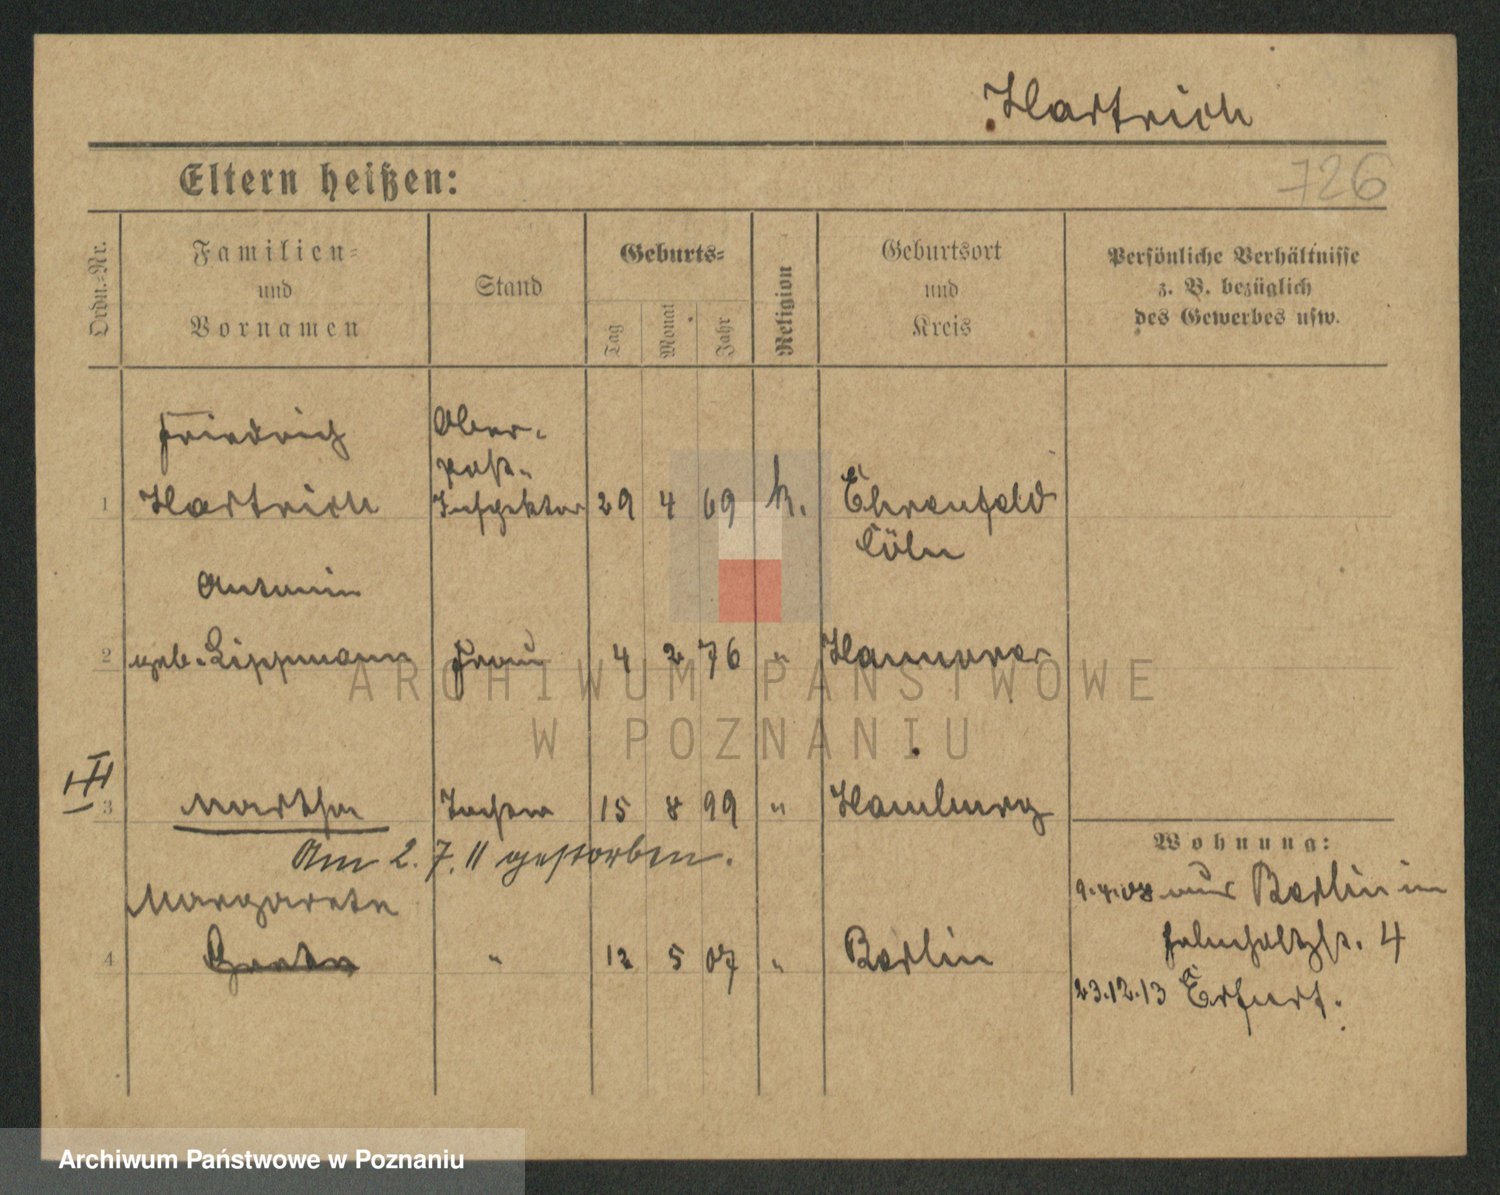 Hartrich
Eltern heißen:
726
Ordn.-Nr.
Familien-
und
Vornamen
Stand
Geburts-
Tag
Monat
Jahr
Religion
Geburtsort
und
Kreis
Persönliche Verhältnisse
z. B. bezüglich
des Gewerbes usw.
Friedrich
Ober-
post-
1 Hartrich Inspektor 29 4 69 k. Ehrenfeld
Cöln
Antonie
2 geb. Lippmann Frau 4 2 76 " Hannover
ARCHIWUM PAŃSTWOWE
W POZNANIU
3 Martha Tochter 15 8 99 " Hamburg
Am 2. 7. 11 gestorben.
Wohnung:
9.4.08 aus Berlin in
Margarete
Helmholtzstr. 4
4 Grete " 12 5 07 " Berlin
23.12.13 Erfurt.
Archiwum Państwowe w Poznaniu